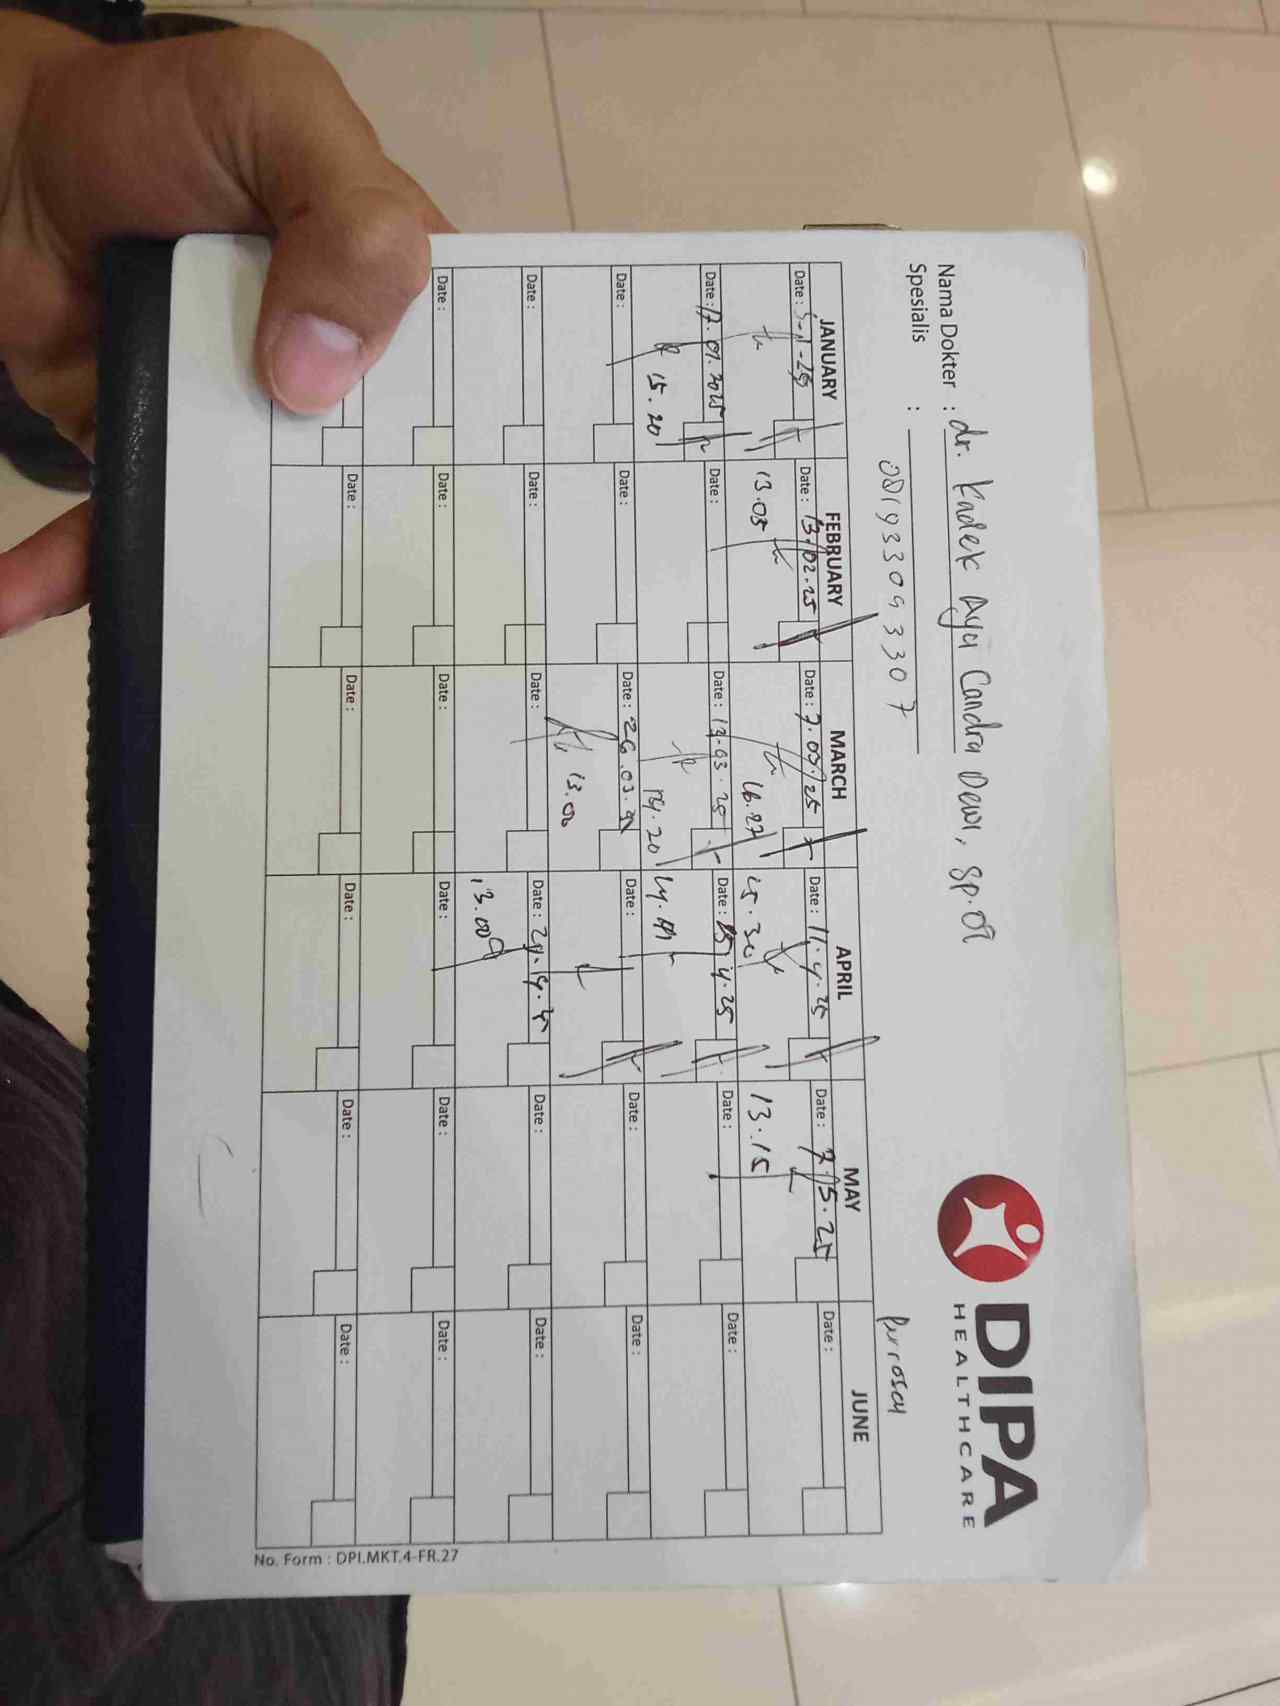 DIPA
HEALTHCARE
Nama Dokter : dr. Kadek Ayu Candra Dewi, Sp.OG
Spesialis : 081933093307
JANUARY FEBRUARY MARCH APRIL MAY JUNE
Date : Date : 13.02.25 Date : 7.03.25 Date : 11.4.25 Date : 7.5.25 Date :
13.05 16.27 15.30 13.15
Date : 17.01.2025 Date : Date : 13.03.25 Date : 4.25 Date : Date :
15.20 14.20
Date : Date : Date : 26.03. Date : Date : Date :
13.00
Date : Date : Date : Date : Date : Date :
13.00
Date : Date : Date : Date : Date : Date :
Date : Date : Date : Date : Date :
No. Form : DPI.MKT.4-FR.27